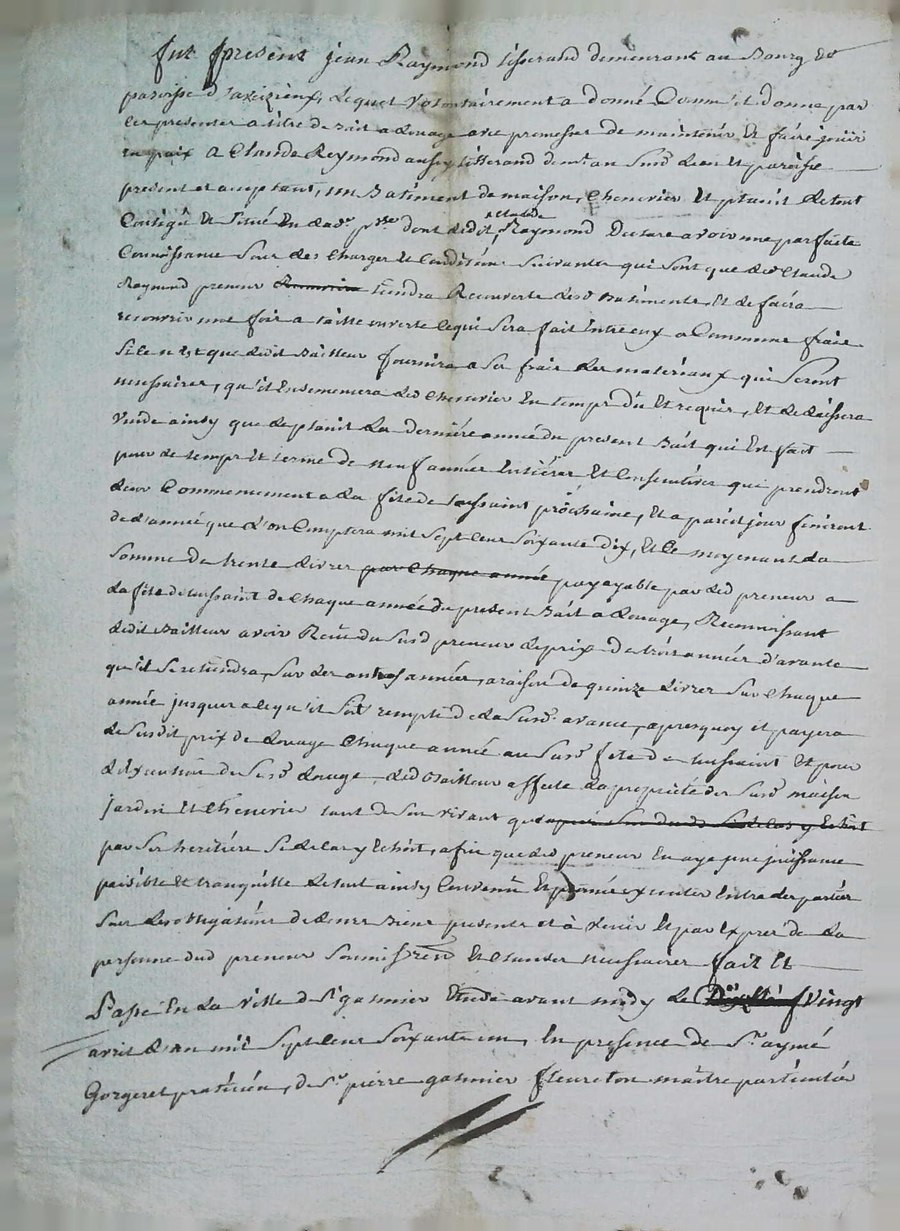 fut present jean Raymond tisserand demeurant au Bourg et
paroisse d'aveizieux, lequel volontairement a donné Comm'il donne par
ces presentes a titre de bail a louage avec promesse de maintenir et faire jouir
en paix a Claude Reymond aussy titterand demt au susd lieu et paroisse
present et acceptant, un Batiment de maison, Chenevier et plantit le tout
Contigû et situé en lade psse dont ledit Claude Raymond declare avoir une parfaite
Connoissance sous les Charges et Conditions suivantes qui sont que led Claude
Raymond preneur tiendra Recouverte lesd batiments, et le faira
recouvrir une fois a taille ouverte ce qui sera fait entre eux a Commune frais
si ce n'est que ledit Bailleur fournira a ses frais les materiaux qui seront
necessaires, qu'il Ensemencera led Chenevier en temps dû et requis, et le laissera
vuide ainsy que le plantit la derniere année du present Bail qui est fait
pour le temps et terme de neuf années entières et Consecutives qui prendront
leur Commencement a la fête de toussaint prochaine, et a pareil jour finiront
de l'année que l'on Comptera mil sept cens soixante dix, et ce moyenant la
somme de trente livres par Chaque année payayable par led preneur a
la fête de toussaint de Chaque année du present Bail a louage, Reconnoissant
ledit Bailleur avoir Reçu du susd preneur le prix de trois années d'avance
qu'il se retiendra, sur les autres années, a raison de quinze livres sur Chaque
année jusques a ce qu'il soit remplit de la susd. avance, apres quoy il payera
le susdit prix de louage Chaque année au susd fête de toussaint et pour
l'execution du susd louage, led Bailleur affecte la propriété des susd maison
jardin et Chenevier tant de son vivant que
par ses heritiers si le Cas y Echoit, afin que led preneur en aye une jouissance
paisible et tranquille le tout ainsy Convenu et promis executer entre les parties
sous les obligations de leurs Biens presents et à venir et par exprès de la
personne dud preneur soumissions et Clauses necessaires fait et
Passé en la ville de St galmier Etude avant midy le vingt
avril l'an mil sept cens soixante un, en presence de Sr aymé
Gorgeret praticien, de Sr pierre galmier fleureton maitre particulier